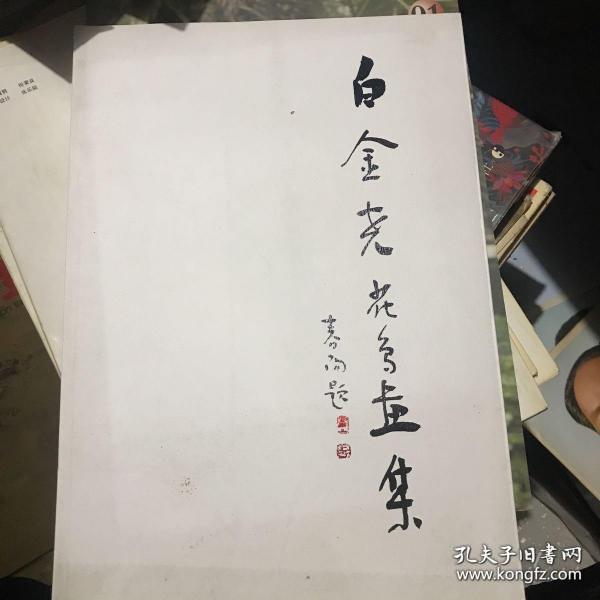 白金尧花鸟画集
春阳题
孔夫子旧書网
www.kongfz.com